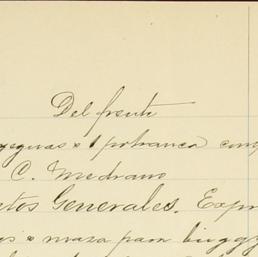 Del frente
yeguas & 1 potranca comp
C. Medrano
tos Generales. Expr
& maza para buggy